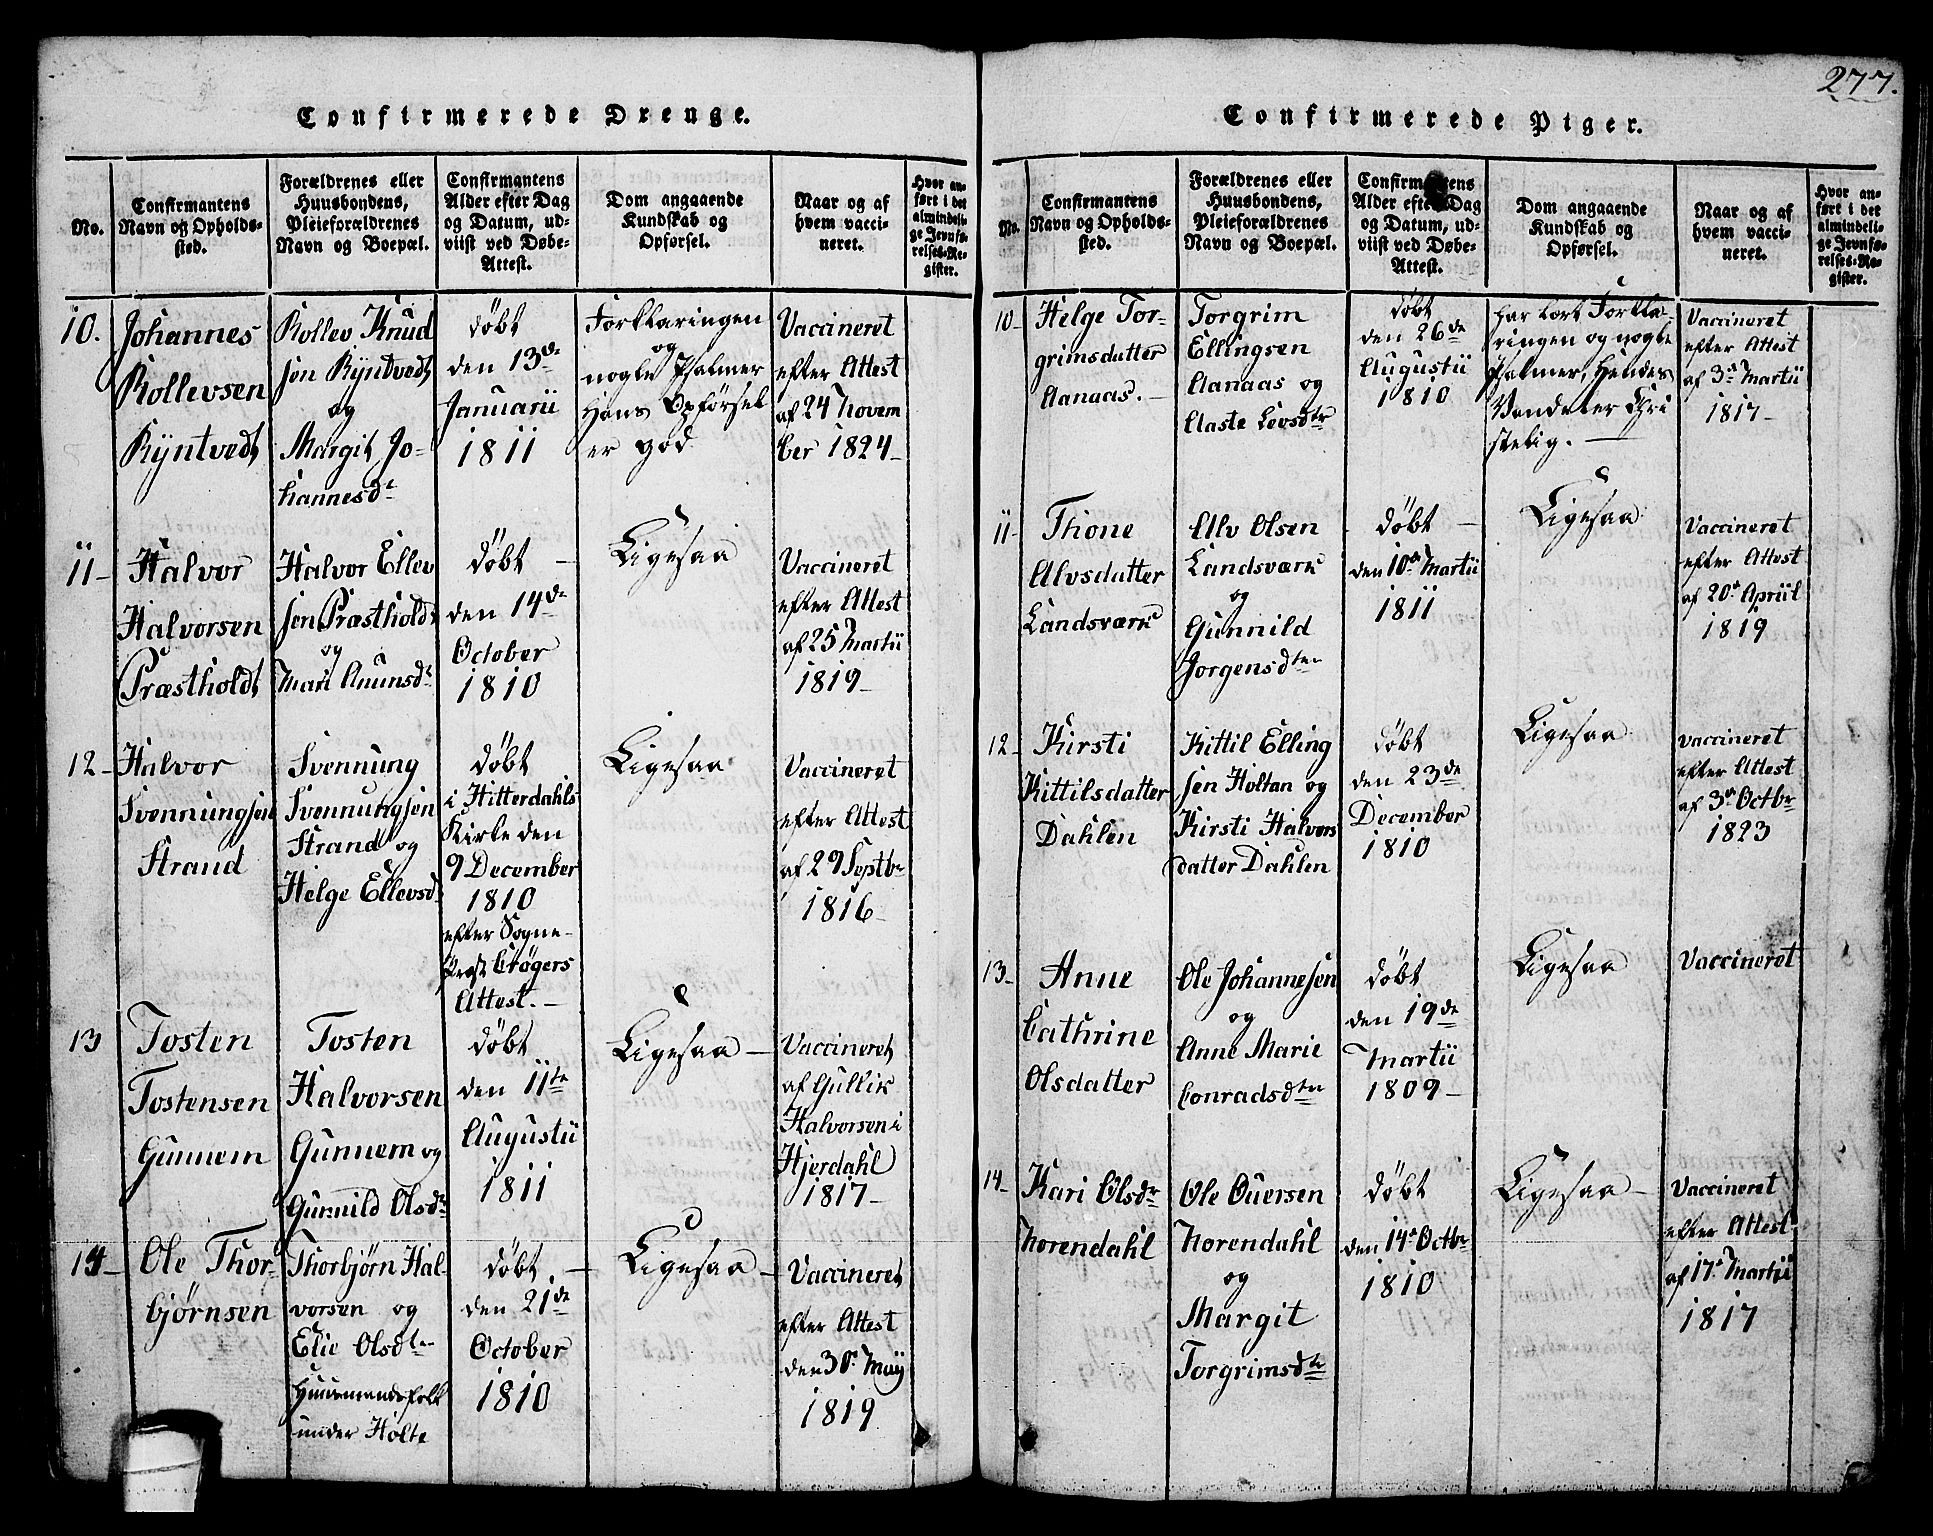 277.
Confirmerede Drenge.
No.
Confirmantens
Navn og Opholds-
sted.
Forældrenes eller
Huusbondens,
Pleieforældrenes
Navn og Boepæl.
Confirmantens
Alder efter Dag
og Datum, ud-
viist ved Døbe-
Attest.
Dom angaaende
Kundskab og
Opførsel.
Naar og af
hvem vacci-
neret.
Hvor an-
ført i det
almindeli-
ge Jevnfø-
relses-Re-
gister.
10.
Johannes
Rollevsen
Ryntvedt
Rollev Knud
sen Ryntvedt
og
Margit Jo-
hannesdr
døbt
den 13de
Januarii
1811
Forklaringen
og
nogle Psalmer
Hans Opførsel
er god
Vaccineret
efter Attest
af 24 Novem
ber 1824-
11-
Halvor
Halvorsen
Præstholdt
Halvor Ellev
sen Præstholdt
og
Mari Anunsdr
døbt -
den 14de
October
1810
Ligesaa
Vaccineret
efter Attest
af 25 Martii
1819-
12-
Halvor
Svennungsen
Strand
Svennung
Svennungsen
Strand og
Helge Ellevsd.
døbt
i Hitterdahls
Kirke den
9 December
1810
efter Sogne-
Præst Crøgers
Attest.-
Ligesaa
Vaccineret
efter Attest
af 29 Septbr
1816-
13
Tosten
Tostensen
Gunnem
Tosten
Halvorsen
Gunnem og
Gunnild Olsdr
døbt
den 11te
Augustii
1811
Ligesaa -
Vaccineret
af Gullik
Halvorsen i
Hjerdahl
1817-
14-
Ole Thor-
bjørnsen
Thorbjørn Hal-
vorsen og
Elie Olsdtr
Huusmandsfolk
under Holte
døbt. -
den 21de
October
1810
Ligesaa -
Vaccineret
efter Attest
den 30te May
1819
Confirmerede Piger.
No.
Confirmantens
Navn og Opholds-
sted.
Forældrenes eller
Huusbondens,
Pleieforældrenes
Navn og Boepæl.
Confirmantens
Alder efter Dag
og Datum, ud-
viist ved Døbe-
Attest.
Dom angaaende
Kundskab og
Opførsel.
Naar og af
hvem vacci-
neret.
Hvor an-
ført i det
almindeli-
ge Jevnfø-
relses-Re-
gister.
10-
Helge Tor-
grimsdatter
Aanaas.-
Torgrim
Ellingsen
Aanaas og
Aaste Levsdtr
døbt
den 26de
Augustii
1810
Har lært Forkla-
ringen og nogle
Psalmer, Hendes
Vandel er Chri
stelig. -
Vaccineret
efter Attest
af 3de Martii
1817-
11-
Thone
Alvsdatter
Landsværk
Alv Olsen
Landsværk
og
Gunnild
Jorgensdter
døbt -
den 10de Martii
1811
Ligesaa
Vaccineret
efter Attest
af 20de Apriil
1819
12-
Kirsti
Kittilsdatter
Dahlen
Kittil Elling
sen Holtan og
Kirsti Halvors
datter Dahlen
døbt
den 23de
December
1810
Ligesaa
Vaccineret
efter Attest
af 3de Octbr
1823
13-
Anne
Cathrine
Olsdatter
Ole Johannesen
og
Anne Marie
Conradsdter
døbt
den 19de
Martii
1809-
Ligesaa
Vaccineret
14-
Kari Olsdr
Norendahl
Ole Ouersen
Norendahl
og
Margit
Torgrimsdtr
døbt
den 14de Octbr
1810
Ligesaa -
Vaccineret
efter Attest
af 17de Martii
1817